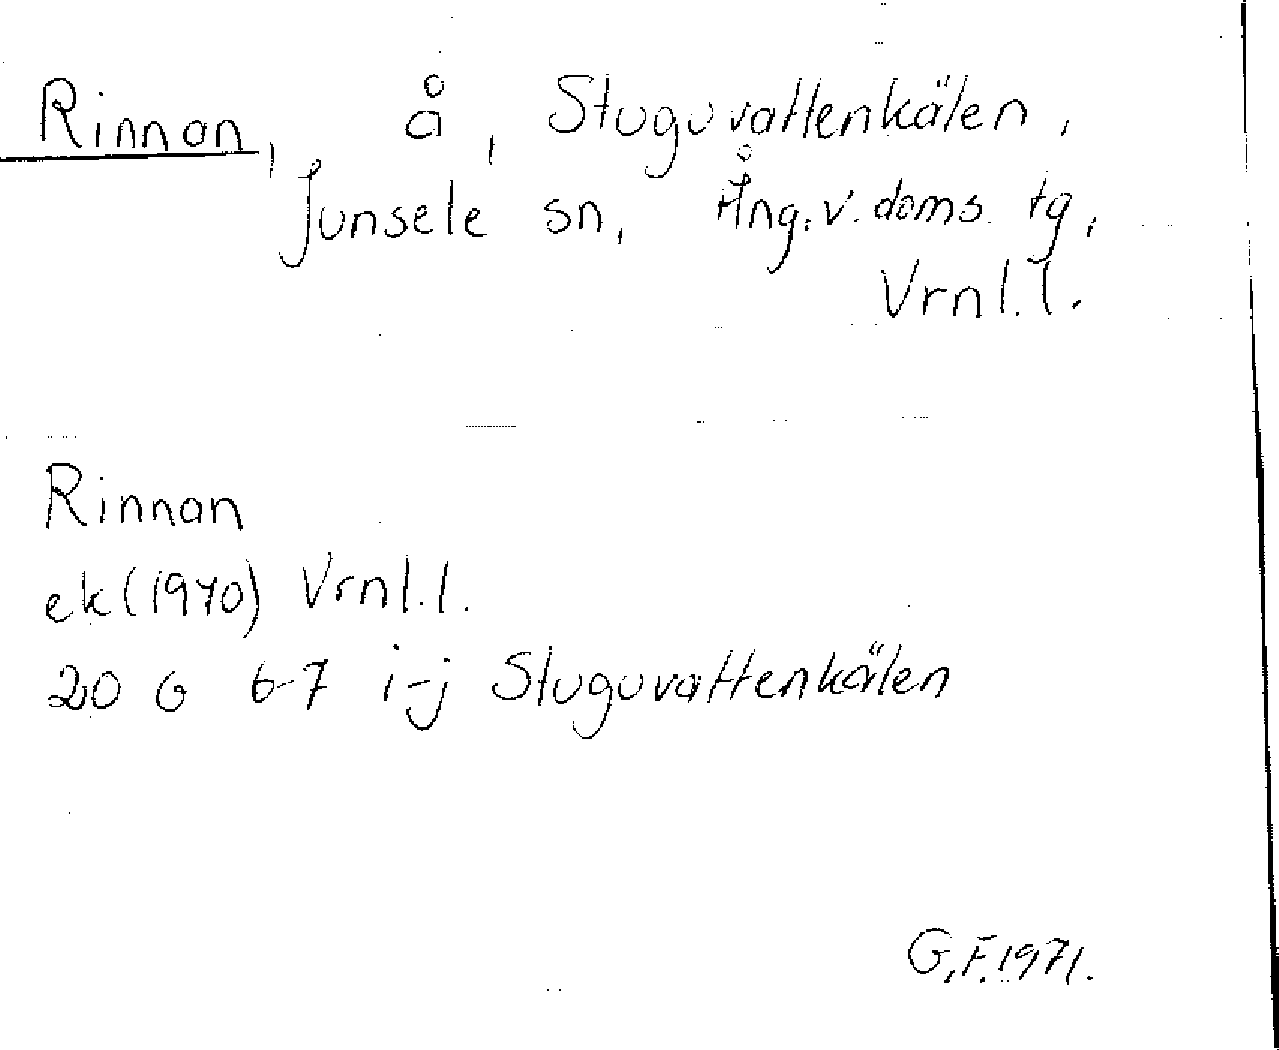 Rinnan, å, Stuguvattenkälen,
Junsele sn, Ång.v. doms. tg,
Vrnl.l.
Rinnan
ek (1970) Vrnl.l.
20 G 6-7 i-j Stuguvattenkälen
G.F. 1971.